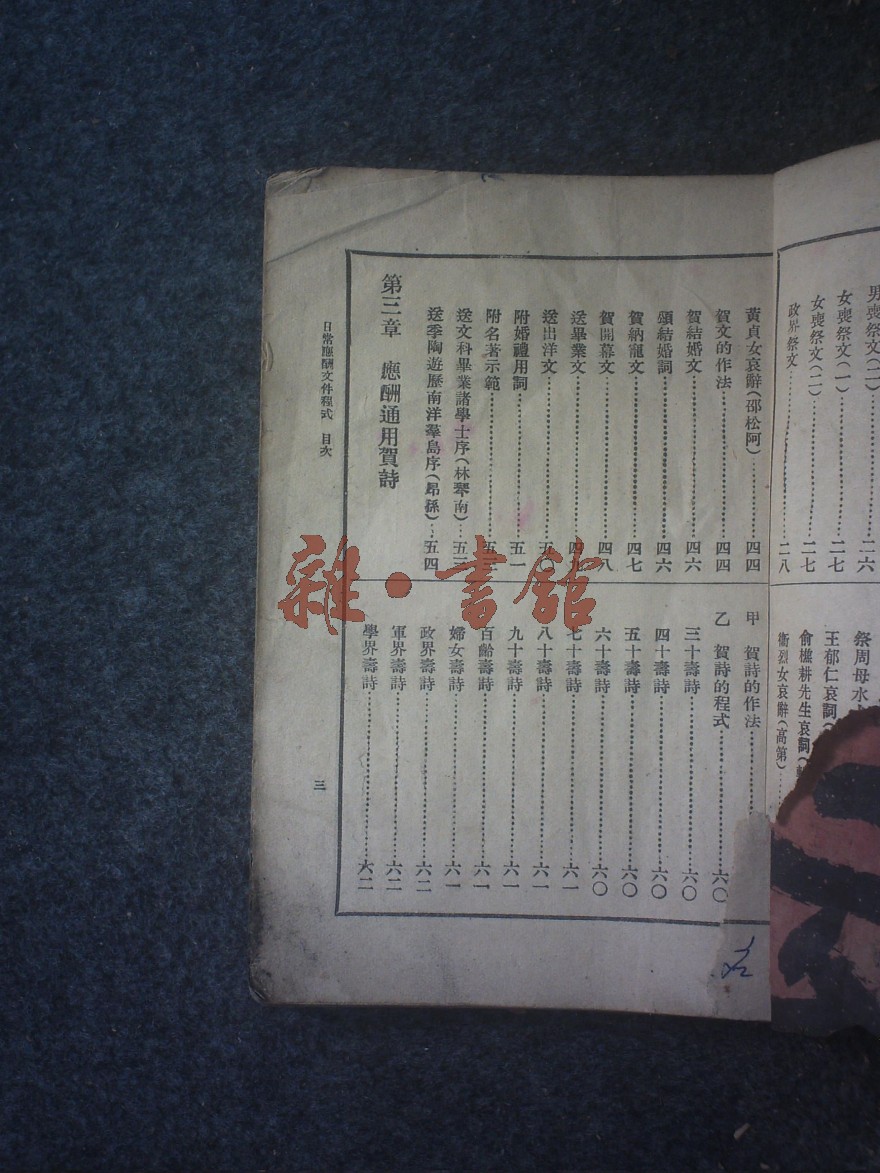 男喪祭文(二)……二六
女喪祭文(一)……二七
女喪祭文(二)……二七
政界祭文……二八
祭周母水
王郁仁哀詞(
俞樵耕先生哀詞(
衞烈女哀辭(高第)……
黃貞女哀辭(邵松阿)……四四
賀文的作法……四四
賀結婚文……四六
頌結婚詞……四六
賀納寵文……四七
賀開幕文……四八
送畢業文……四九
送出洋文……五〇
附婚禮用詞……五一
附名著示範……五三
送文科畢業諸學士序(林琴南)……五三
送季陶遊歷南洋羣島序(昂孫)……五四
第三章 應酬通用賀詩
甲 賀詩的作法……
乙 賀詩的程式……六〇
三十壽詩……六〇
四十壽詩……六〇
五十壽詩……六〇
六十壽詩……六〇
七十壽詩……六一
八十壽詩……六一
九十壽詩……六一
百齡壽詩……六一
婦女壽詩……六一
政界壽詩……六二
軍界壽詩……六二
學界壽詩……六二
日常應酬文件程式 目次
三
雜·書館